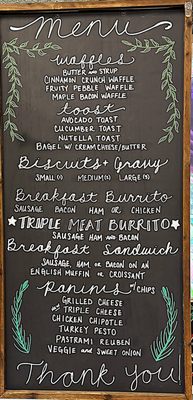 Menu
waffles
Butter and Syrup
Cinnamon Crunch Waffle
Fruity Pebble Waffle
Maple Bacon Waffle
toast
Avocado Toast
Cucumber Toast
Nutella Toast
Bagel w/ Cream Cheese/Butter
Biscuits + Gravy
Small() Medium() Large()
Breakfast Burrito
Sausage Bacon Ham or Chicken
Triple Meat Burrito
Sausage Ham and Bacon
Breakfast Sandwich
Sausage, Ham or Bacon on an
English Muffin or Croissant
paninis w/chips
Grilled Cheese
Triple Cheese
Chicken Chipotle
Turkey Pesto
Pastrami Reuben
Veggie and Sweet Onion
Thank you!